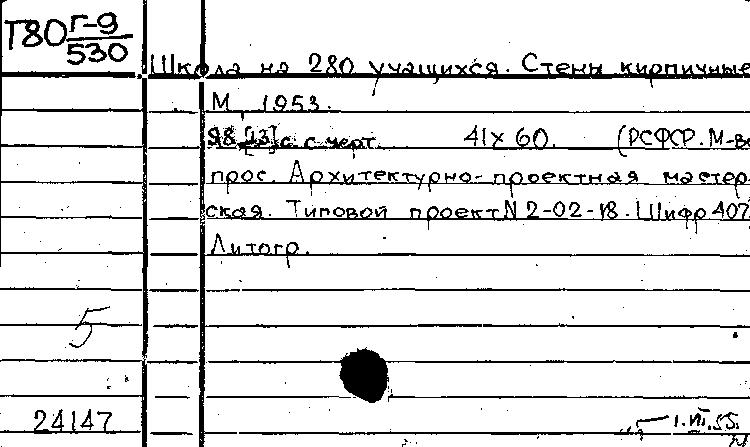 Т80 Г-9
530
Школа на 280 учащихся. Стены кирпичные
М, 1953.
98 [13] с с черт. 41х60. (РСФСР. М-во
прос. Архитектурно-проектная мастер-
ская. Типовой проект N 2-02-18. Шифр 407
Литогр.
5
24147
1.VII.55.